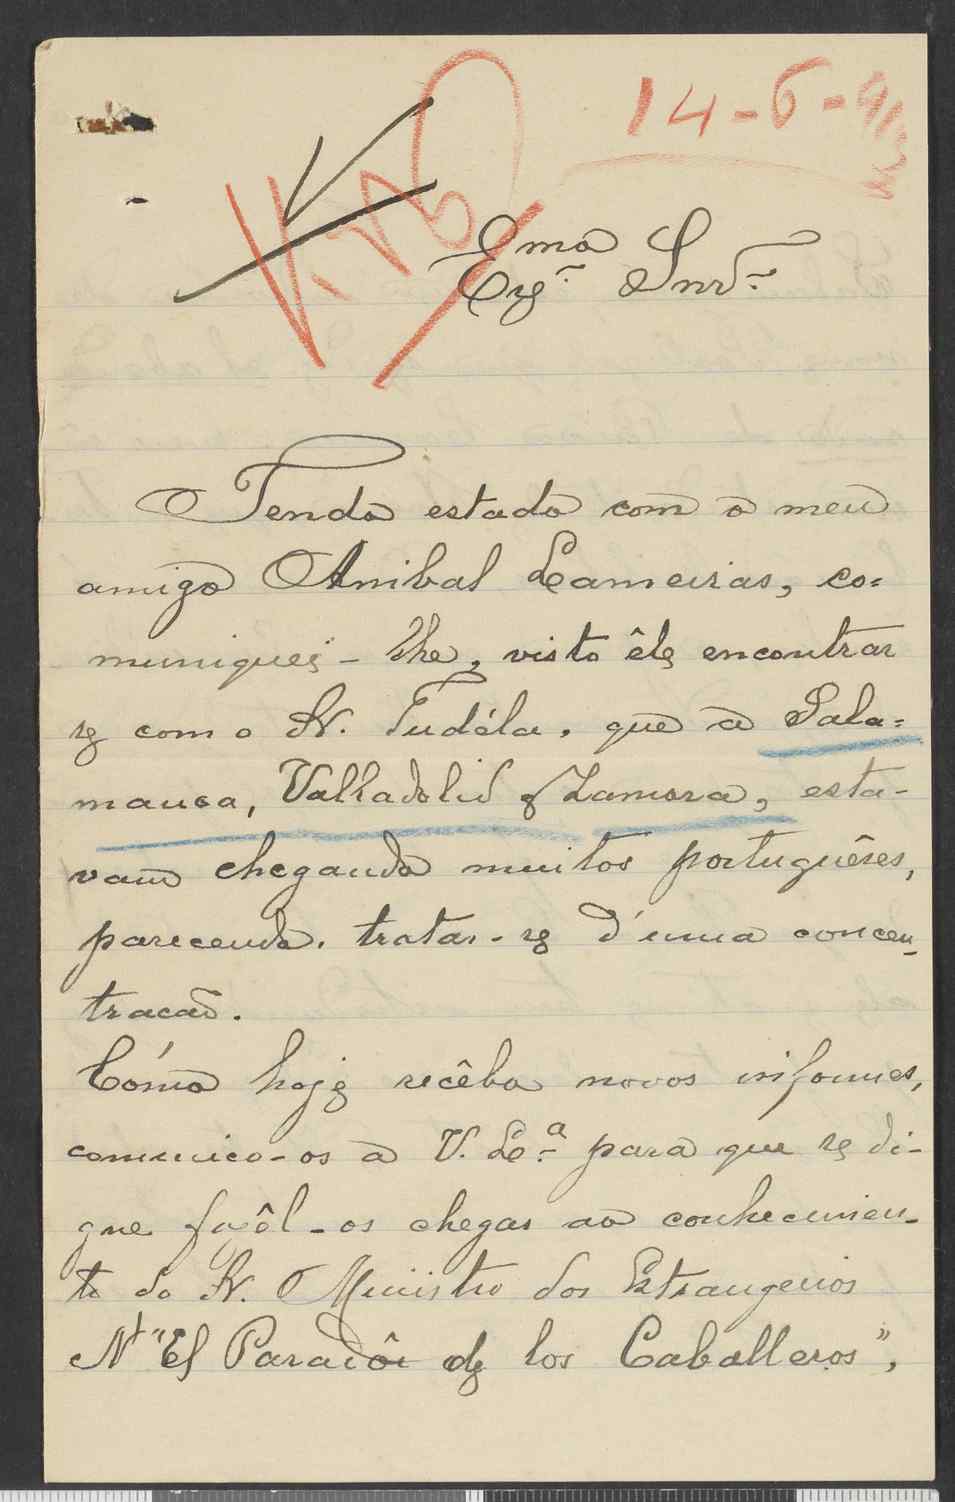 14-6-913
Exmo Snr.
Tendo estado com o meu
amigo Anibal Lameiras, co=
muniquei-lhe, visto êle encontrar
se com o Sr. Tudéla, que a Sala=
manca, Valladolid e Zamora, esta-
vam chegando muitos portuguêses,
parecendo, tratar-se d'uma concen-
tracão.
Cómo hoje recêba novos informes,
comunico-os a V. Ex.ª para que se di-
gne fazêl-os chegar ao conhecimen-
to do Sr. Ministro dos Estrangeiros
Nº "El Paradôr de los Caballeros",